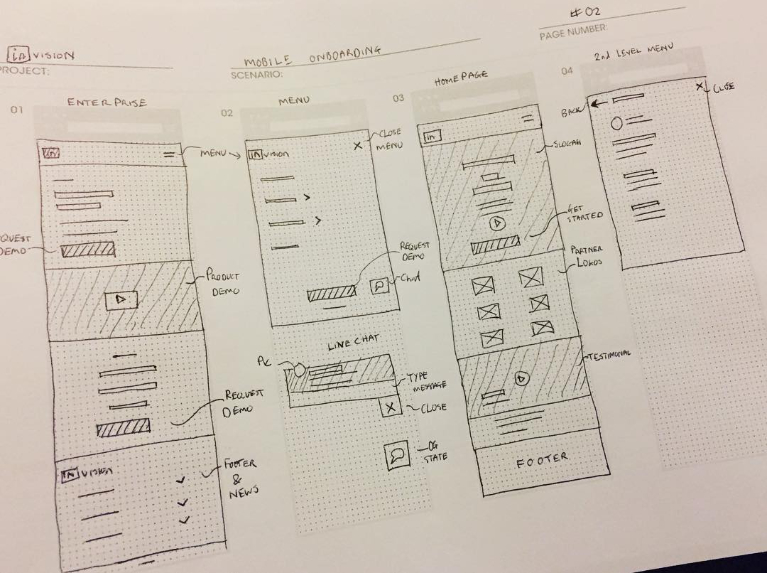 in VISION
PROJECT:
MOBILE ONBOARDING
SCENARIO:
#02
PAGE NUMBER:
01
ENTERPRISE
in
MENU
REQUEST
DEMO
PRODUCT
DEMO
REQUEST
DEMO
in VISION
FOOTER
&
NEWS
02
MENU
in VISION
CLOSE
MENU
REQUEST
DEMO
Chat
LIVE CHAT
TYPE
MESSAGE
CLOSE
OG
STATE
03
HOMEPAGE
in
SLOGAN
GET
STARTED
PARTNER
LOGOS
TESTIMONIAL
FOOTER
04
2nd LEVEL MENU
BACK
CLOSE